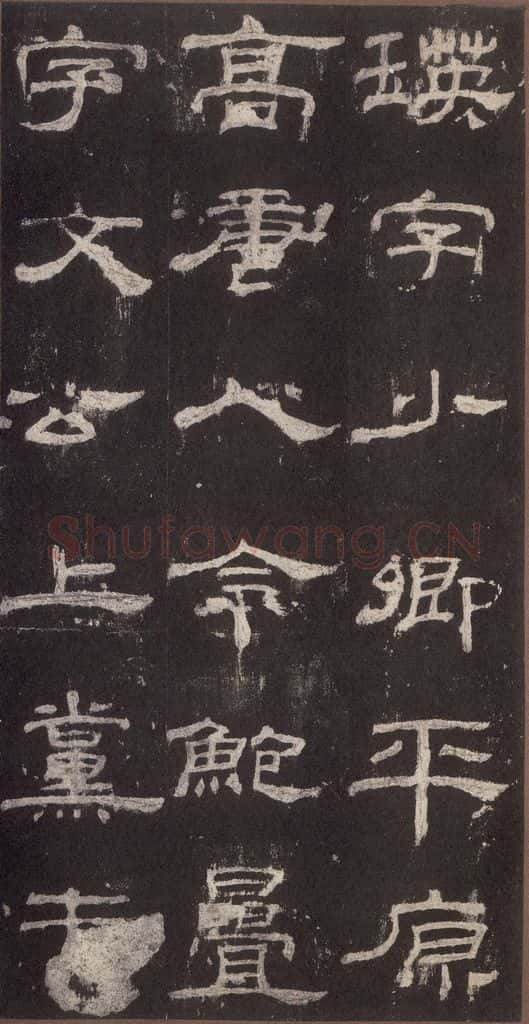 瑛字少卿平原
高唐人令鮑疊
字文公上黨
Shufawang.CN